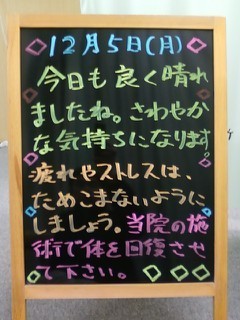 12月5日(月)
今日も良く晴れ
ましたね。さわやか
な気持ちになります。
疲れやストスは、
ためこまないように
しましょう。当院の施
術で体を回復させ
て下さい。